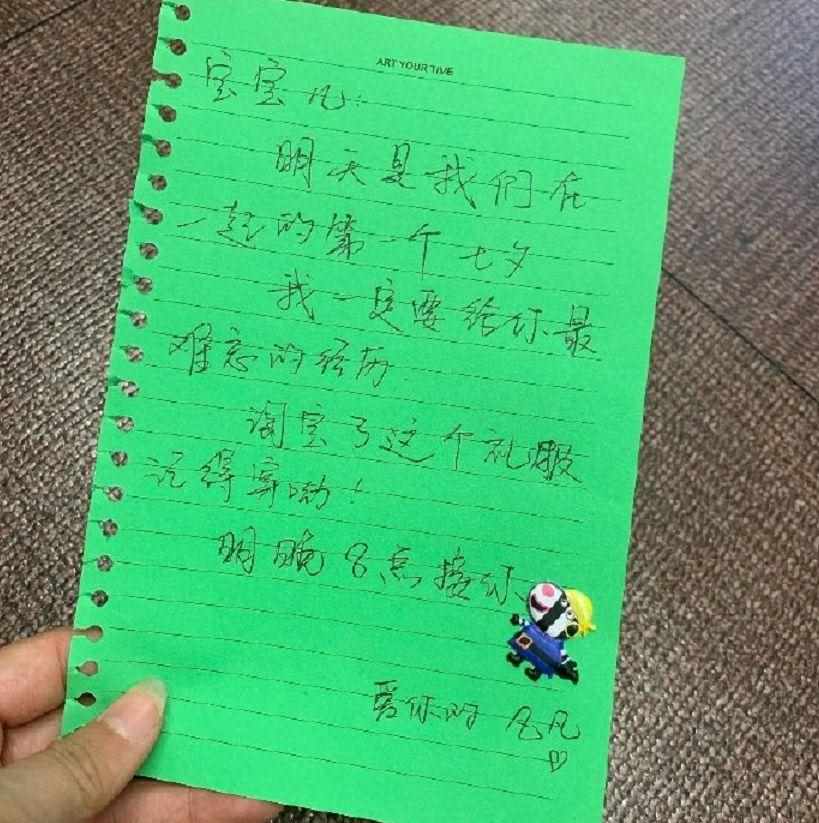 ART YOUR TIME
宝宝凡:
明天是我们在
一起的第一个七夕
我一定要给你最
难忘的经历.
淘宝了这个礼服
记得穿呦!
明晚8点接你
爱你的 凡凡